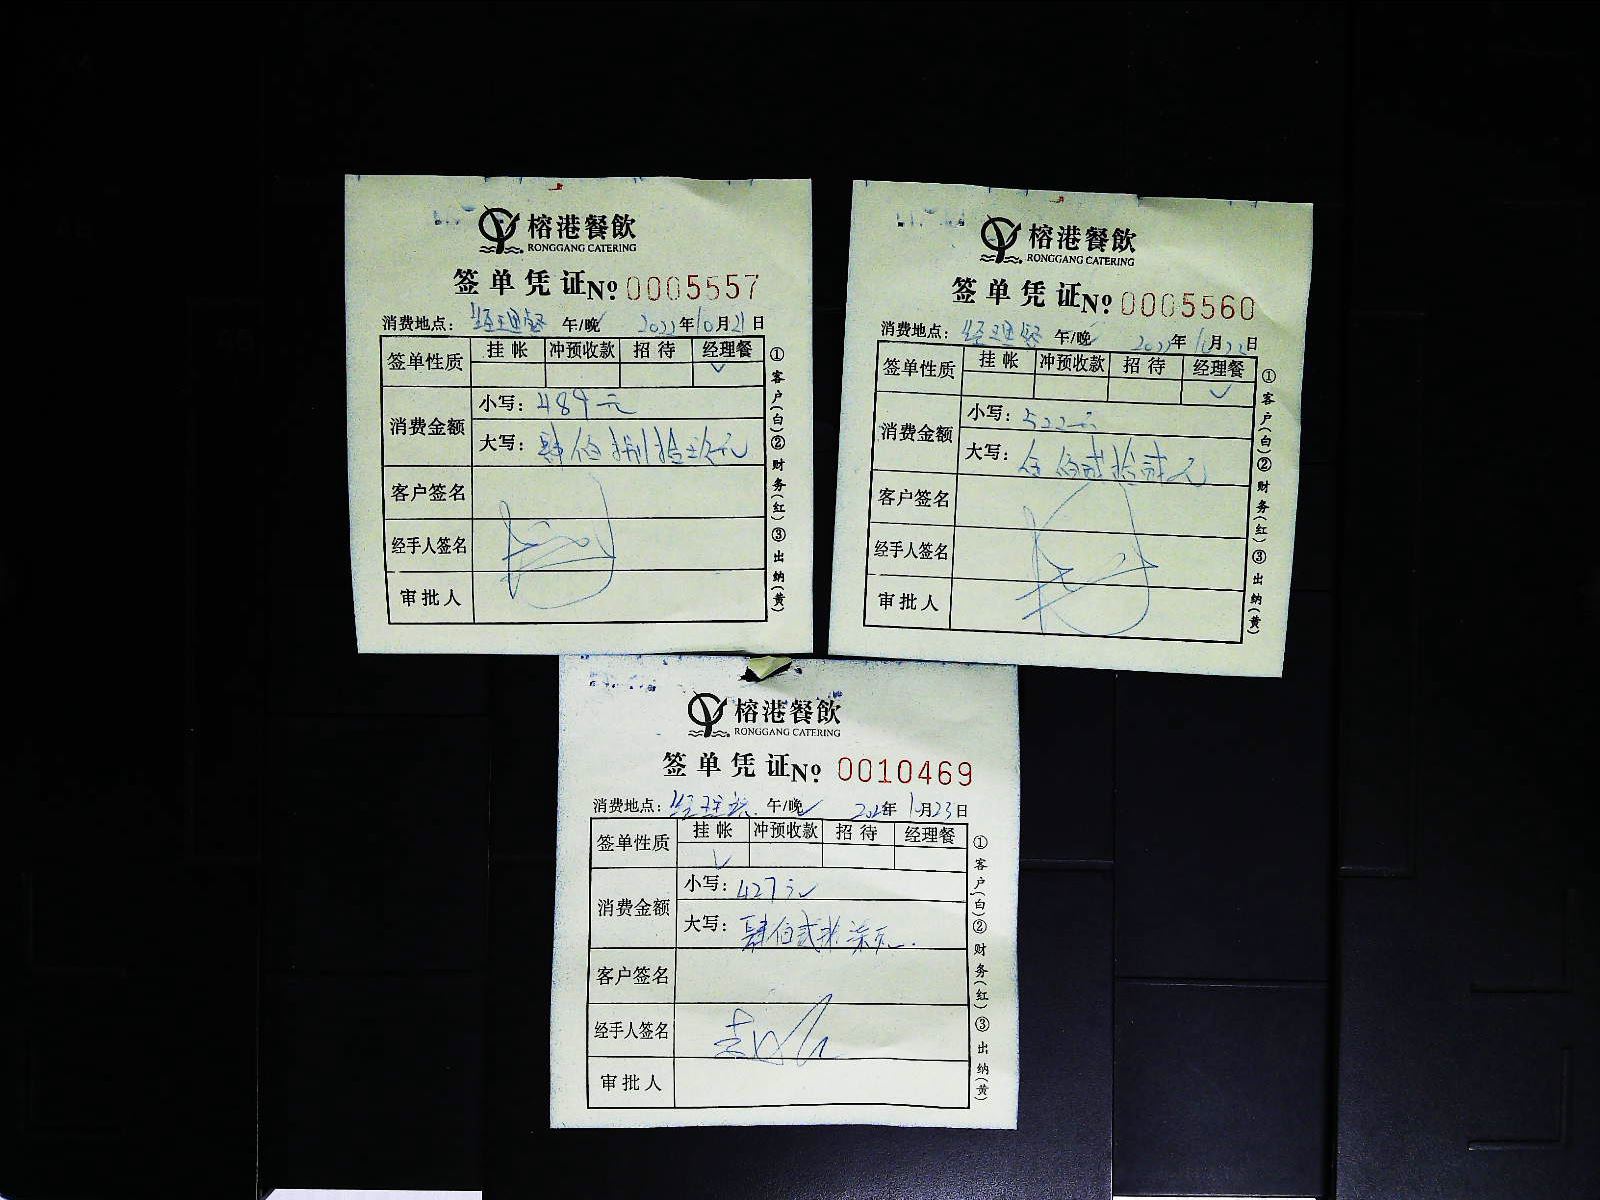 榕港餐飲
RONGGANG CATERING
签单凭证№ 0005557
消费地点：经理餐 午/晚 2022年10月21日
签单性质 挂帐 冲预收款 招待 经理餐
消费金额
小写：484元
大写：肆佰捌拾肆元
客户签名
经手人签名
审批人
①客户(白)②财务(红)③出纳(黄)
榕港餐飲
RONGGANG CATERING
签单凭证№ 0005560
消费地点：经理餐 午/晚 2022年10月22日
签单性质 挂帐 冲预收款 招待 经理餐
消费金额
小写：522元
大写：伍佰贰拾贰元
客户签名
经手人签名
审批人
①客户(白)②财务(红)③出纳(黄)
榕港餐飲
RONGGANG CATERING
签单凭证№ 0010469
消费地点：经理餐 午/晚 年10月23日
签单性质 挂帐 冲预收款 招待 经理餐
消费金额
小写：427元
大写：肆佰贰拾柒元
客户签名
经手人签名
审批人
①客户(白)②财务(红)③出纳(黄)